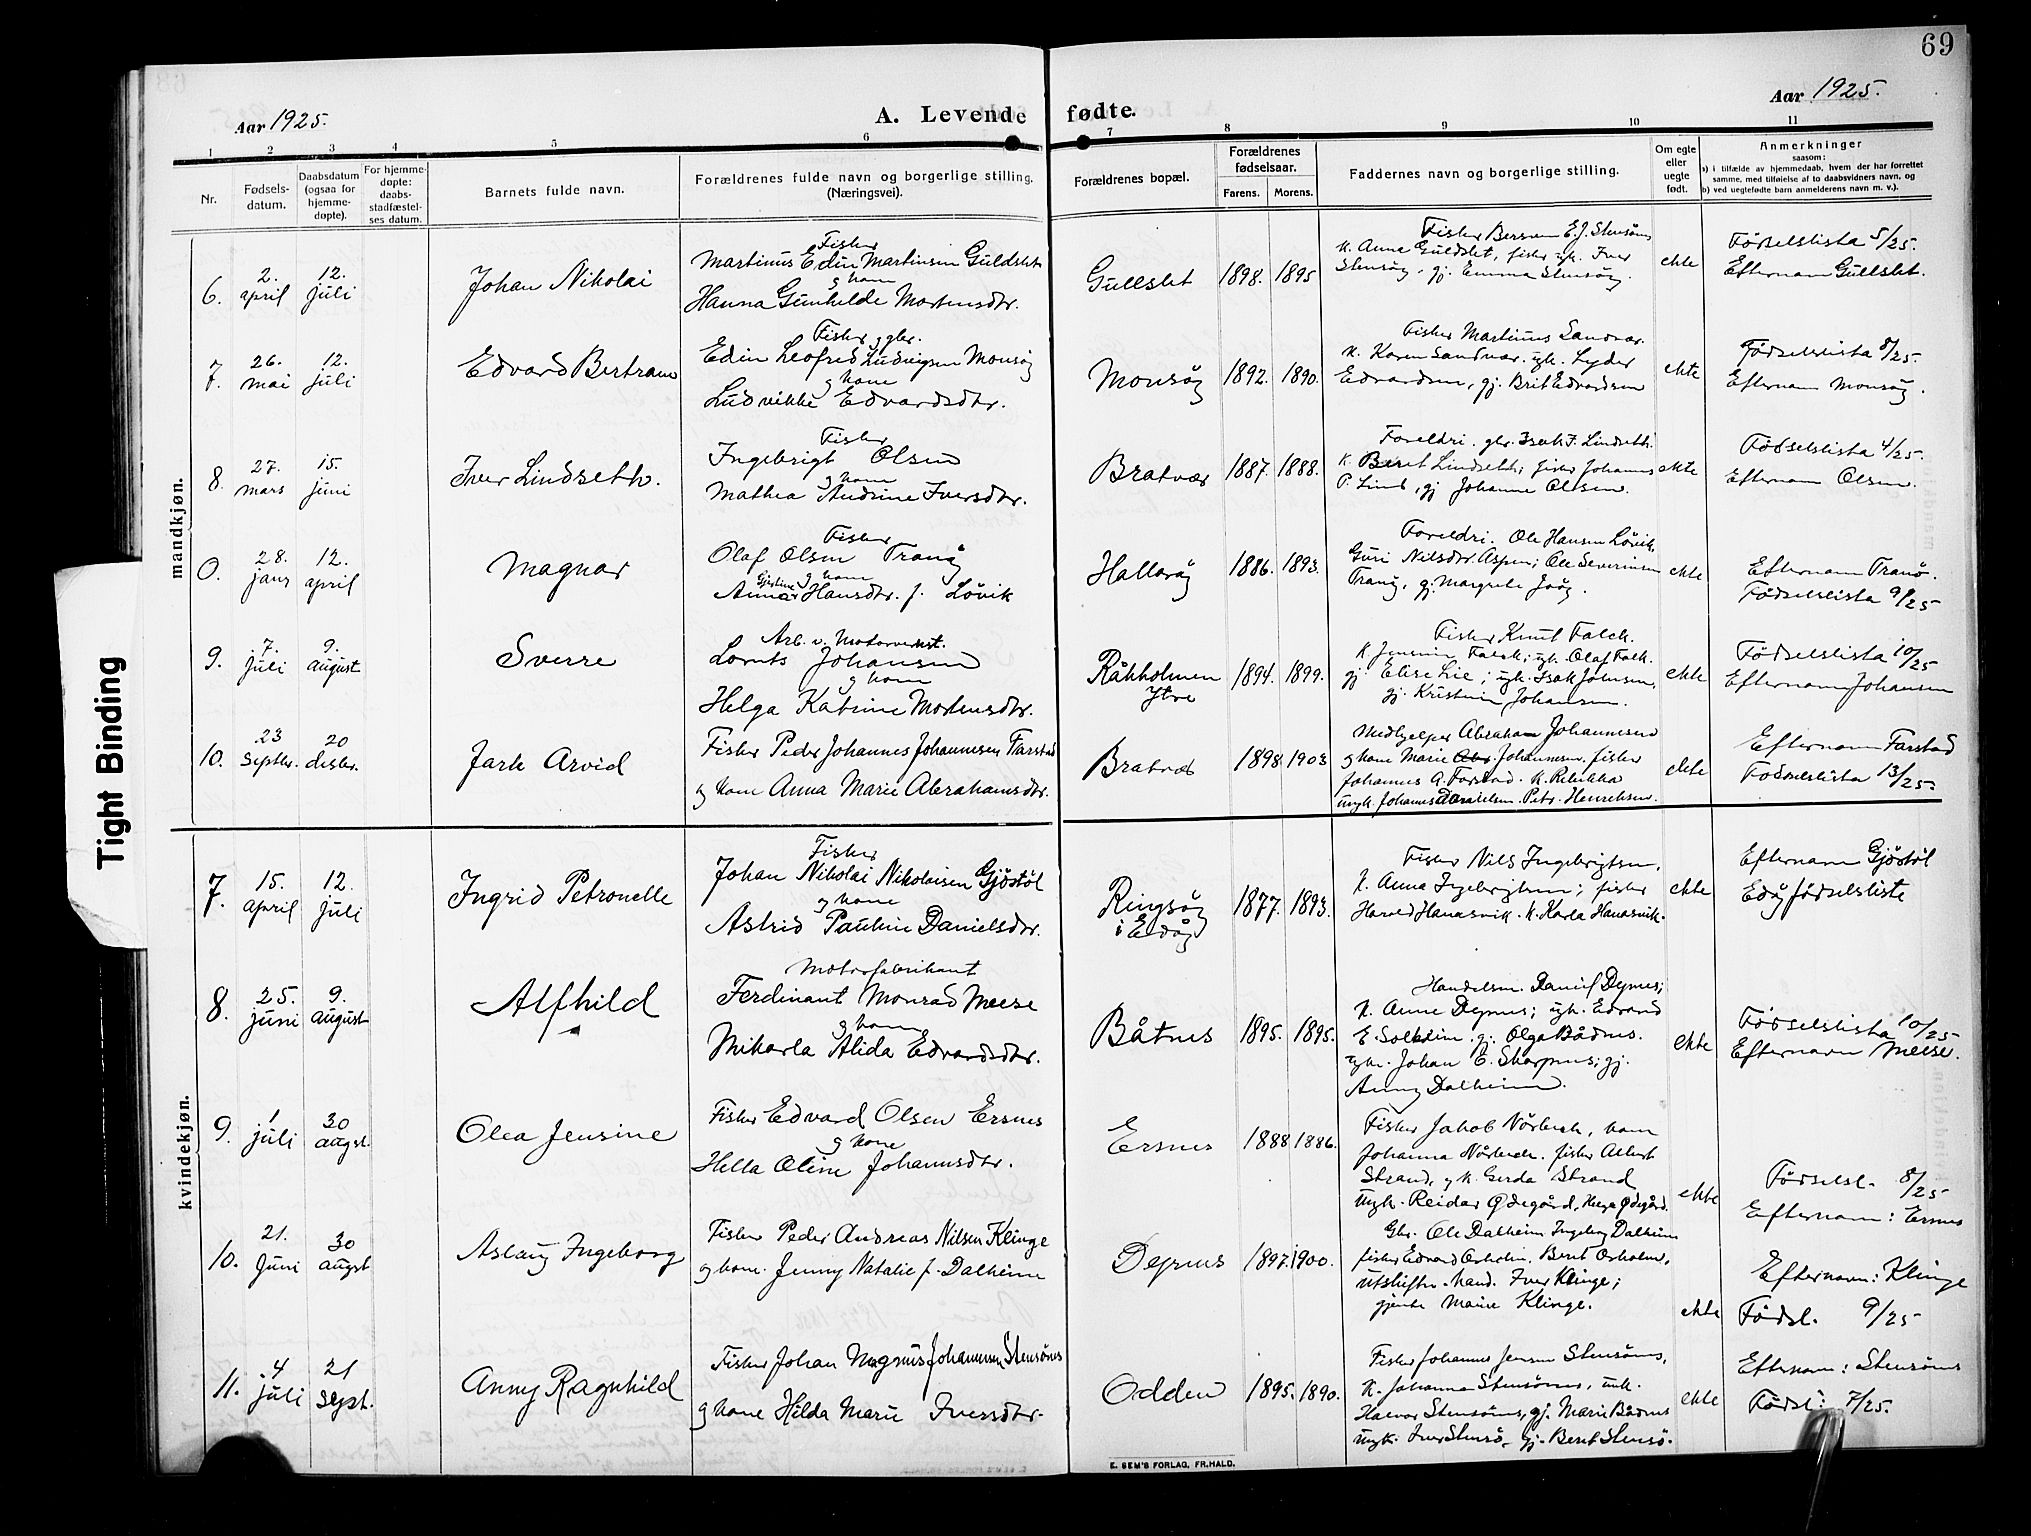 69
Aar 1925.
A. Levende fødte.
Aar 1925.
1 2 3 4 5 6 7 8 9 10 11
Nr.
Fødsels-
datum.
Daabsdatum
(ogsaa for
hjemme-
døpte).
For hjemme-
døpte:
daabs-
stadfæstel-
ses datum.
Barnets fulde navn.
Forældrenes fulde navn og borgerlige stilling.
(Næringsvei).
Forældrenes bopæl.
Forældrenes
fødselsaar.
Farens. Morens.
Faddernes navn og borgerlige stilling.
Om egte
eller
uegte
født.
Anmerkninger
saasom:
a) i tilfælde av hjemmedaab, hvem der har forrettet
samme, med tilføielse af to daabsvidners navn, og
b) ved uegtefødte barn anmelderens navn m. v.).
mandkjøn.
6. 2. april 12. juli Johan Nikolai
Fisker
Martinus Edin Martinsen Guldslet
og kone
Hanna Gunhilde Mortensdtr.
Gullslet 1898. 1895
Fisker Bersven E.J. Stensöns
K. Anna Guldslet, fisker ugk. Iver
Stensöy, gj. Emma Stensöy.
ekte
Födselslista 5/25.
Efternam Gullslet.
7. 26. mai 12. juli Edvard Bertram
Fisker og gbr.
Edin Leofred Ludvigsen Monsöy
og kone
Ludvikke Edvardsdtr.
Monsöy 1892. 1890.
Fisker Martinus Sandvær.
K. Karen Sandvær. ugk. Lyder
Edvardsen, gj. Brit Edvardsen
ekte
Födselslista 8/25.
Efternam Monsöy.
8. 27. mars 15. juni Iver Lindseth.
Fisker
Ingebrigt Olsen
og kone
Mathea Andrine Iversdtr.
Bratvær 1887. 1888.
Foreldri. gbr. Isak F. Lindseth.
K. Beret Lindseth; fisker Johannes
P. Lind, gj. Johanne Olsen.
ekte
Födselslista 4/25.
Efternam Olsen.
0. 28. janr 12. april Magnar
Fisker
Olaf Olsen Tranöy
og kone
Anna Gjertine Hansdtr. f. Lövik
Hallaröy 1886. 1893.
Foreldri. Ole Hansen Lövik.
Guri Nilsdtr. Aspen; Ole Severinsen
Tranöy, gj. Margrete Joöy.
ekte
Efternam Tranö.
Födselslista 9/25
9. 7. juli 9. august Sverre
Arb. v. Motorverkst.
Lornts Johansen
og kone
Helga Katrine Mortensdtr.
Råkholmen
Ytre 1894. 1899.
Fisker Knut Falch.
K. Jensine Falch; ugk. Olaf Falk.
gj. Elise Lie; ugk. Isak Johnsen,
gj. Kristine Johansen.
ekte
Födselslista 10/25
Efternam Johansen
10. 23 septbr. 20 desbr. Jarle Arvid
Fisker Peder Johannes Johannesen Farstad
og kone Anna Marie Abrahamsdtr.
Bratvær 1898. 1903
Medhjelper Abraham Johannesen
og kone Marie Johannesen. fisker
Johannes A. Farstad. K. Rebekka
ungk. Johannes Danielsen. Petr. Henriksen.
ekte
Efternam Farstad
Födselslista 13/25.
kvindekjøn.
7. 15. april 12. juli Ingrid Petronelle
Fisker
Johan Nikolai Nikolaisen Gjöstöl
og kone
Astrid Pauline Danielsdtr.
Ringsöy
i Edöy 1877. 1893.
Fisker Nils Ingebrigtsen.
K. Anna Ingebrigtsen; fisker
Harald Hanasvik. K. Karla Hanasvik.
ekte
Efternam Gjöstöl
Edöy födselsliste
8. 25. juni 9. august Alfhild
Motorfabrikant
Ferdinant Monrad Meese
og kone
Mikarla Alida Edvardsdtr.
Båtnes 1895. 1895.
Handelsm. Daniel Dyrnes;
K. Anne Dyrnes; ugk. Edvard
E. Solheim. gj. Olga Bådnes.
ugk. Johan E. Skarpnes; gj.
Anny Dalheim.
ekte
Födselslista 10/25
Efternavn Meese.
9. 1 juli 30 augst. Olea Jensine
Fisker Edvard Olsen Ersnes
og kone
Hella Oline Johannsdtr.
Ersnes 1888 1886.
Fisker Jakob Nörbech, kone
Johanna Nörbech. fisker Albert
Strand, og k. Gerda Strand
ungk. Reidar Ødegård, Helga Ødegård.
ekte
Födselsl. 8/25
Efternam: Ersnes
10. 21. juni 30 augst Aslaug Ingeborg
Fisker Peder Andreas Nilsen Klinge
og kone. Jenny Natalie f. Dalheim
Dyrnes 1897. 1900.
Gbr. Ole Dalheim Ingeborg Dalheim
fisker Edvard Orholm. Berit Orholm,
utskiftn. kand. Iver Klinge;
gjente Marie Klinge.
ekte
Efternavn: Klinge
Födsl. 9/25
11. 4 juli 21 sept. Anny Ragnhild
Fisker Johan Magnus Johannesen Stensönes
og kone Hilda Marie Iversdtr.
Odden 1895. 1890.
Fisker Johannes Jensen Stensönes,
K. Johanna Stensönes, unk.
Halvor Stensönes, gj. Marie Bådnes
ungk. Iver Stensö, gj. Beret Stensö.
ekte
Efternam: Stensönes
Födsl: 7/25.
E. SEM'S FORLAG, FR.HALD.
Tight Binding